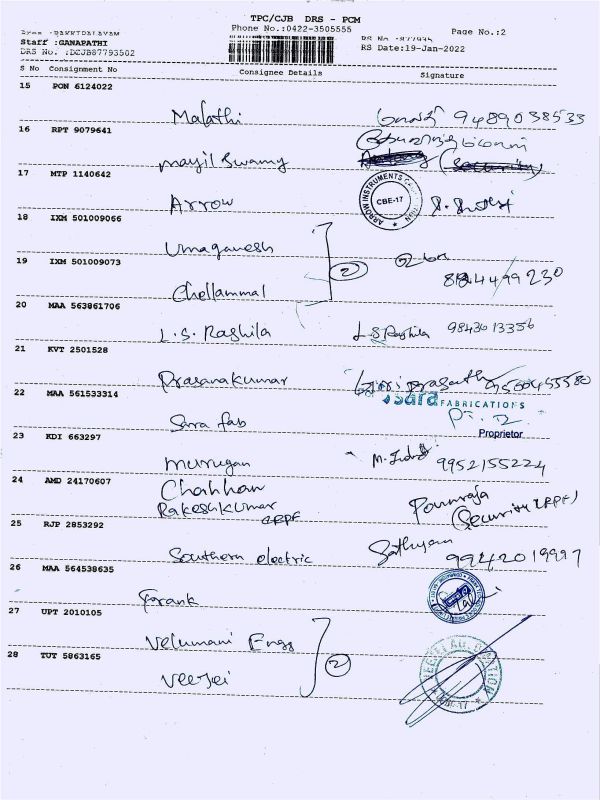 TPC/CJB DRS - PCM
Phone No.:0422-3505555 Page No.:2
Staff :GANAPATHI
DRS No. :DCJB87793502 RS Date:19-Jan-2022
S No Consignment No Consignee Details Signature
15 PON 6124022
Malathi மாலதி 9489038533
16 RPT 9079641
mayil Swamy (Security)
17 MTP 1140642
Arrow ARROW INSTRUMENTS CBE-17
18 IXM 501009066
Umaganesh
2
19 IXM 501009073
Chellammal 8184499230
20 MAA 563861706
L.S. Raghila L.S Raghila 9843613356
21 KVT 2501528
Prasanakumar Giri prasath
22 MAA 561533314 Sara FABRICATIONS
Sara fab
Proprietor
23 KDI 663297
murugan 9952155224
24 AMD 24170607
Chahhan
Rakeshkumar Ponnraja
CRPF (Security CRPF)
25 RJP 2853292
Southern electric Sathyam
26 MAA 564538635
Frank
27 UPT 2010105
Velumani Engg
2
28 TUT 5863165
Veejei